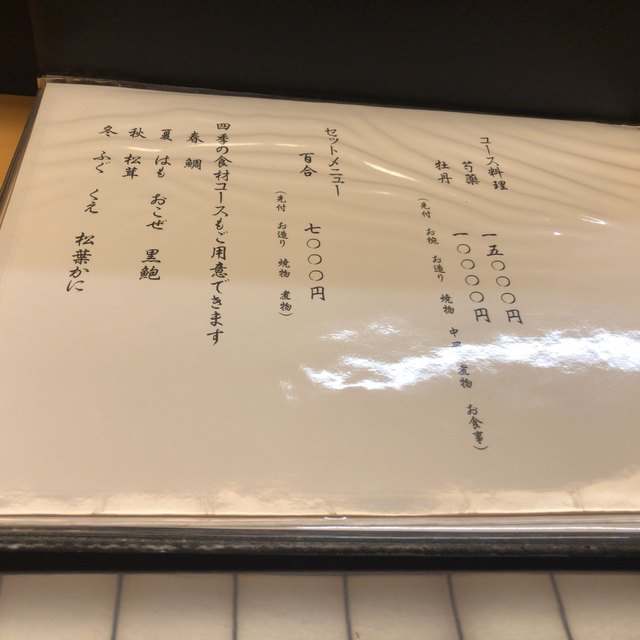 コース料理
芍薬 一五〇〇〇円
牡丹 一〇〇〇〇円
(先付 お椀 お造り 焼物 中皿 煮物 お食事)
セットメニュー
百合 七〇〇〇円
(先付 お造り 焼物 煮物)
四季の食材コースもご用意できます
春 鯛
夏 はも おこぜ 黒鮑
秋 松茸
冬 ふぐ くえ 松葉かに